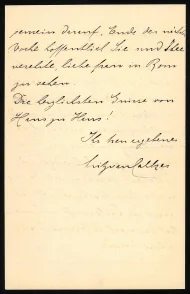 gemein darauf, Ende der nächsten
Woche hoffentlich Sie und Ihre
verehrte liebe Frau in Rom
zu sehen.
Die herzlichsten Grüsse von
Haus zu Haus!
Ihr treu ergebener